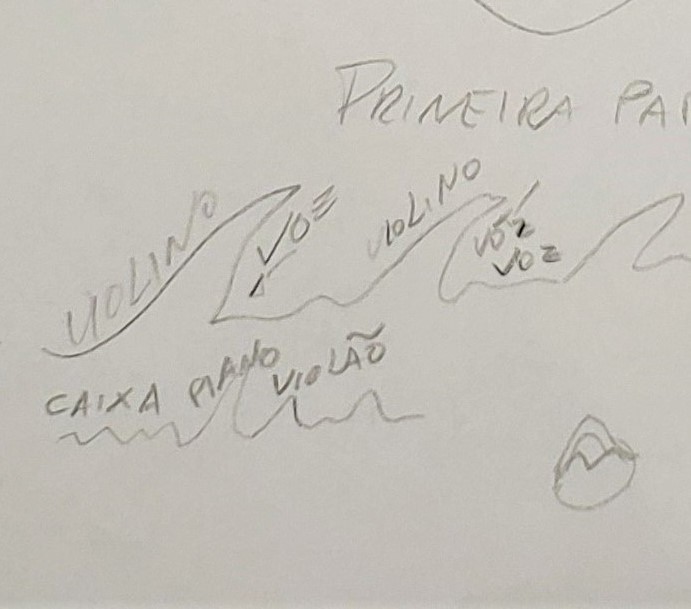 PRINEIRA PAR
VIOLINO VOZ VIOLINO VOZ
VOZ
CAIXA PIANO VIOLÃO